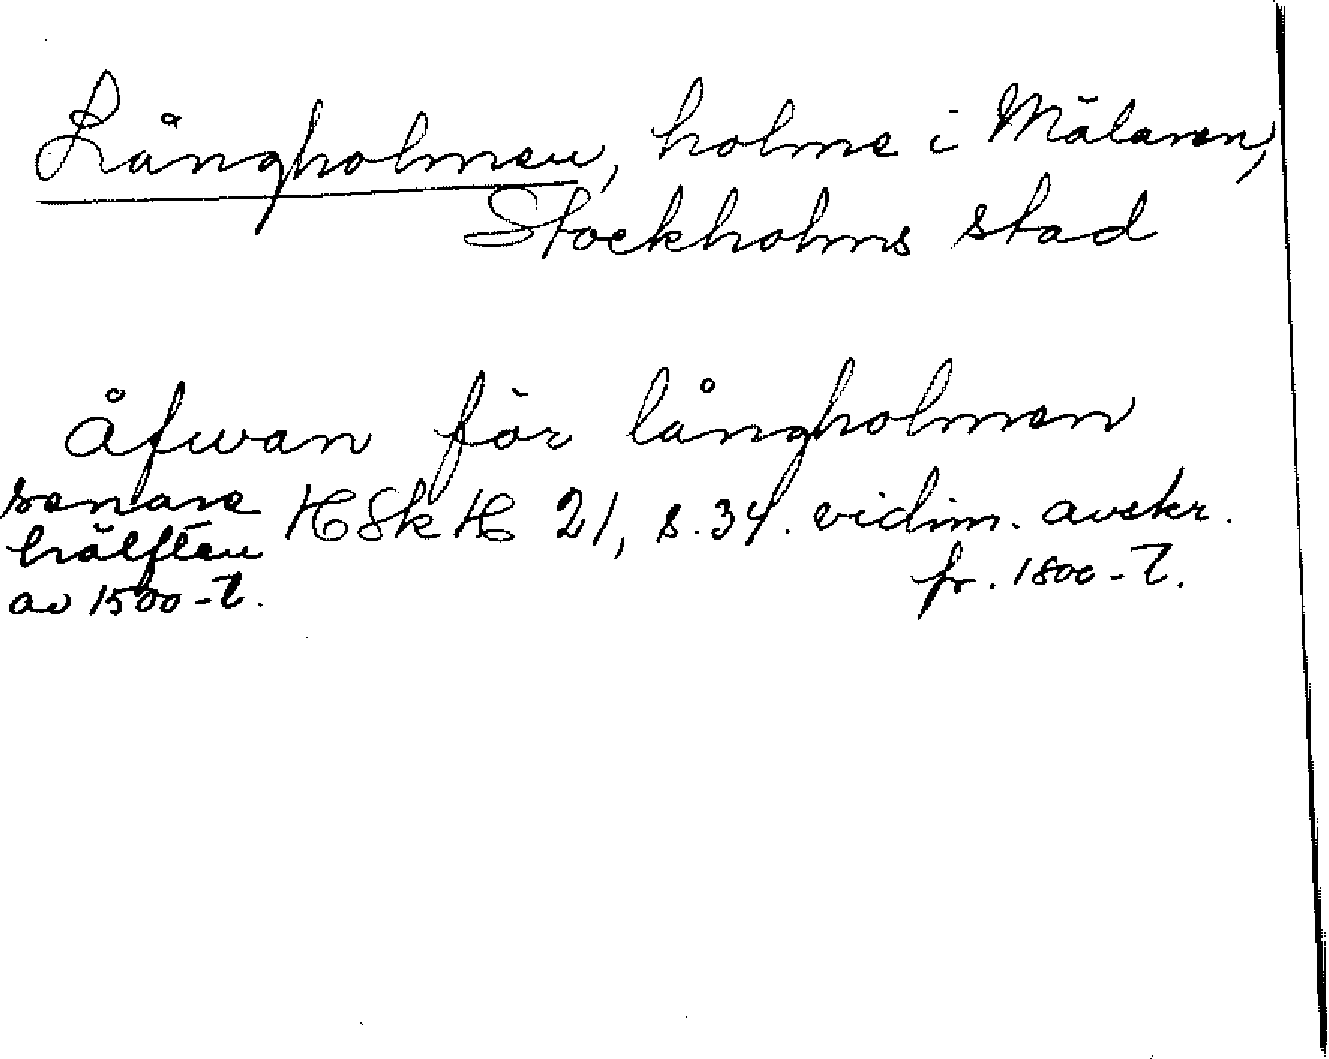 Långholmen, holme i Mälaren,
Stockholms stad
åfwan för långholmen
senare HSkH 21, s. 34. vidim. avskr.
hälften fr. 1800-t.
av 1500-t.